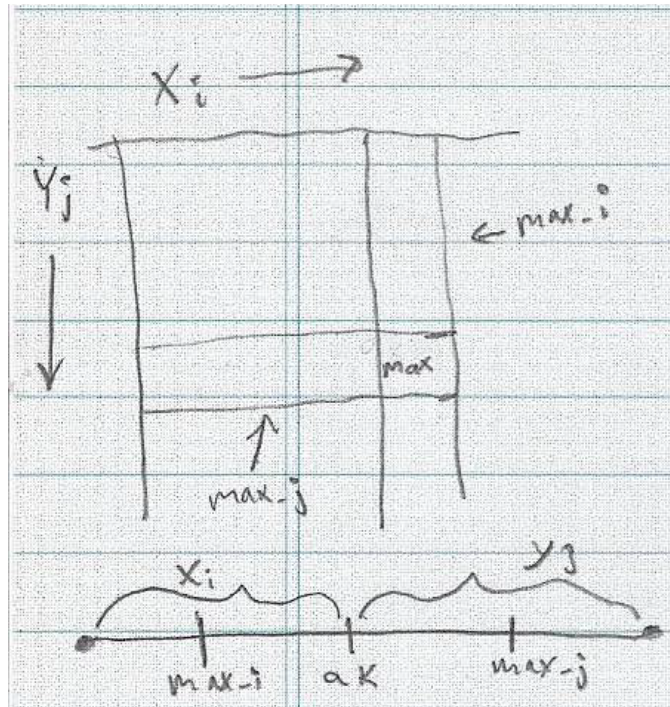 Xi
Yj
max_i
max
max_j
Xi
yj
max_i
ak
max_j